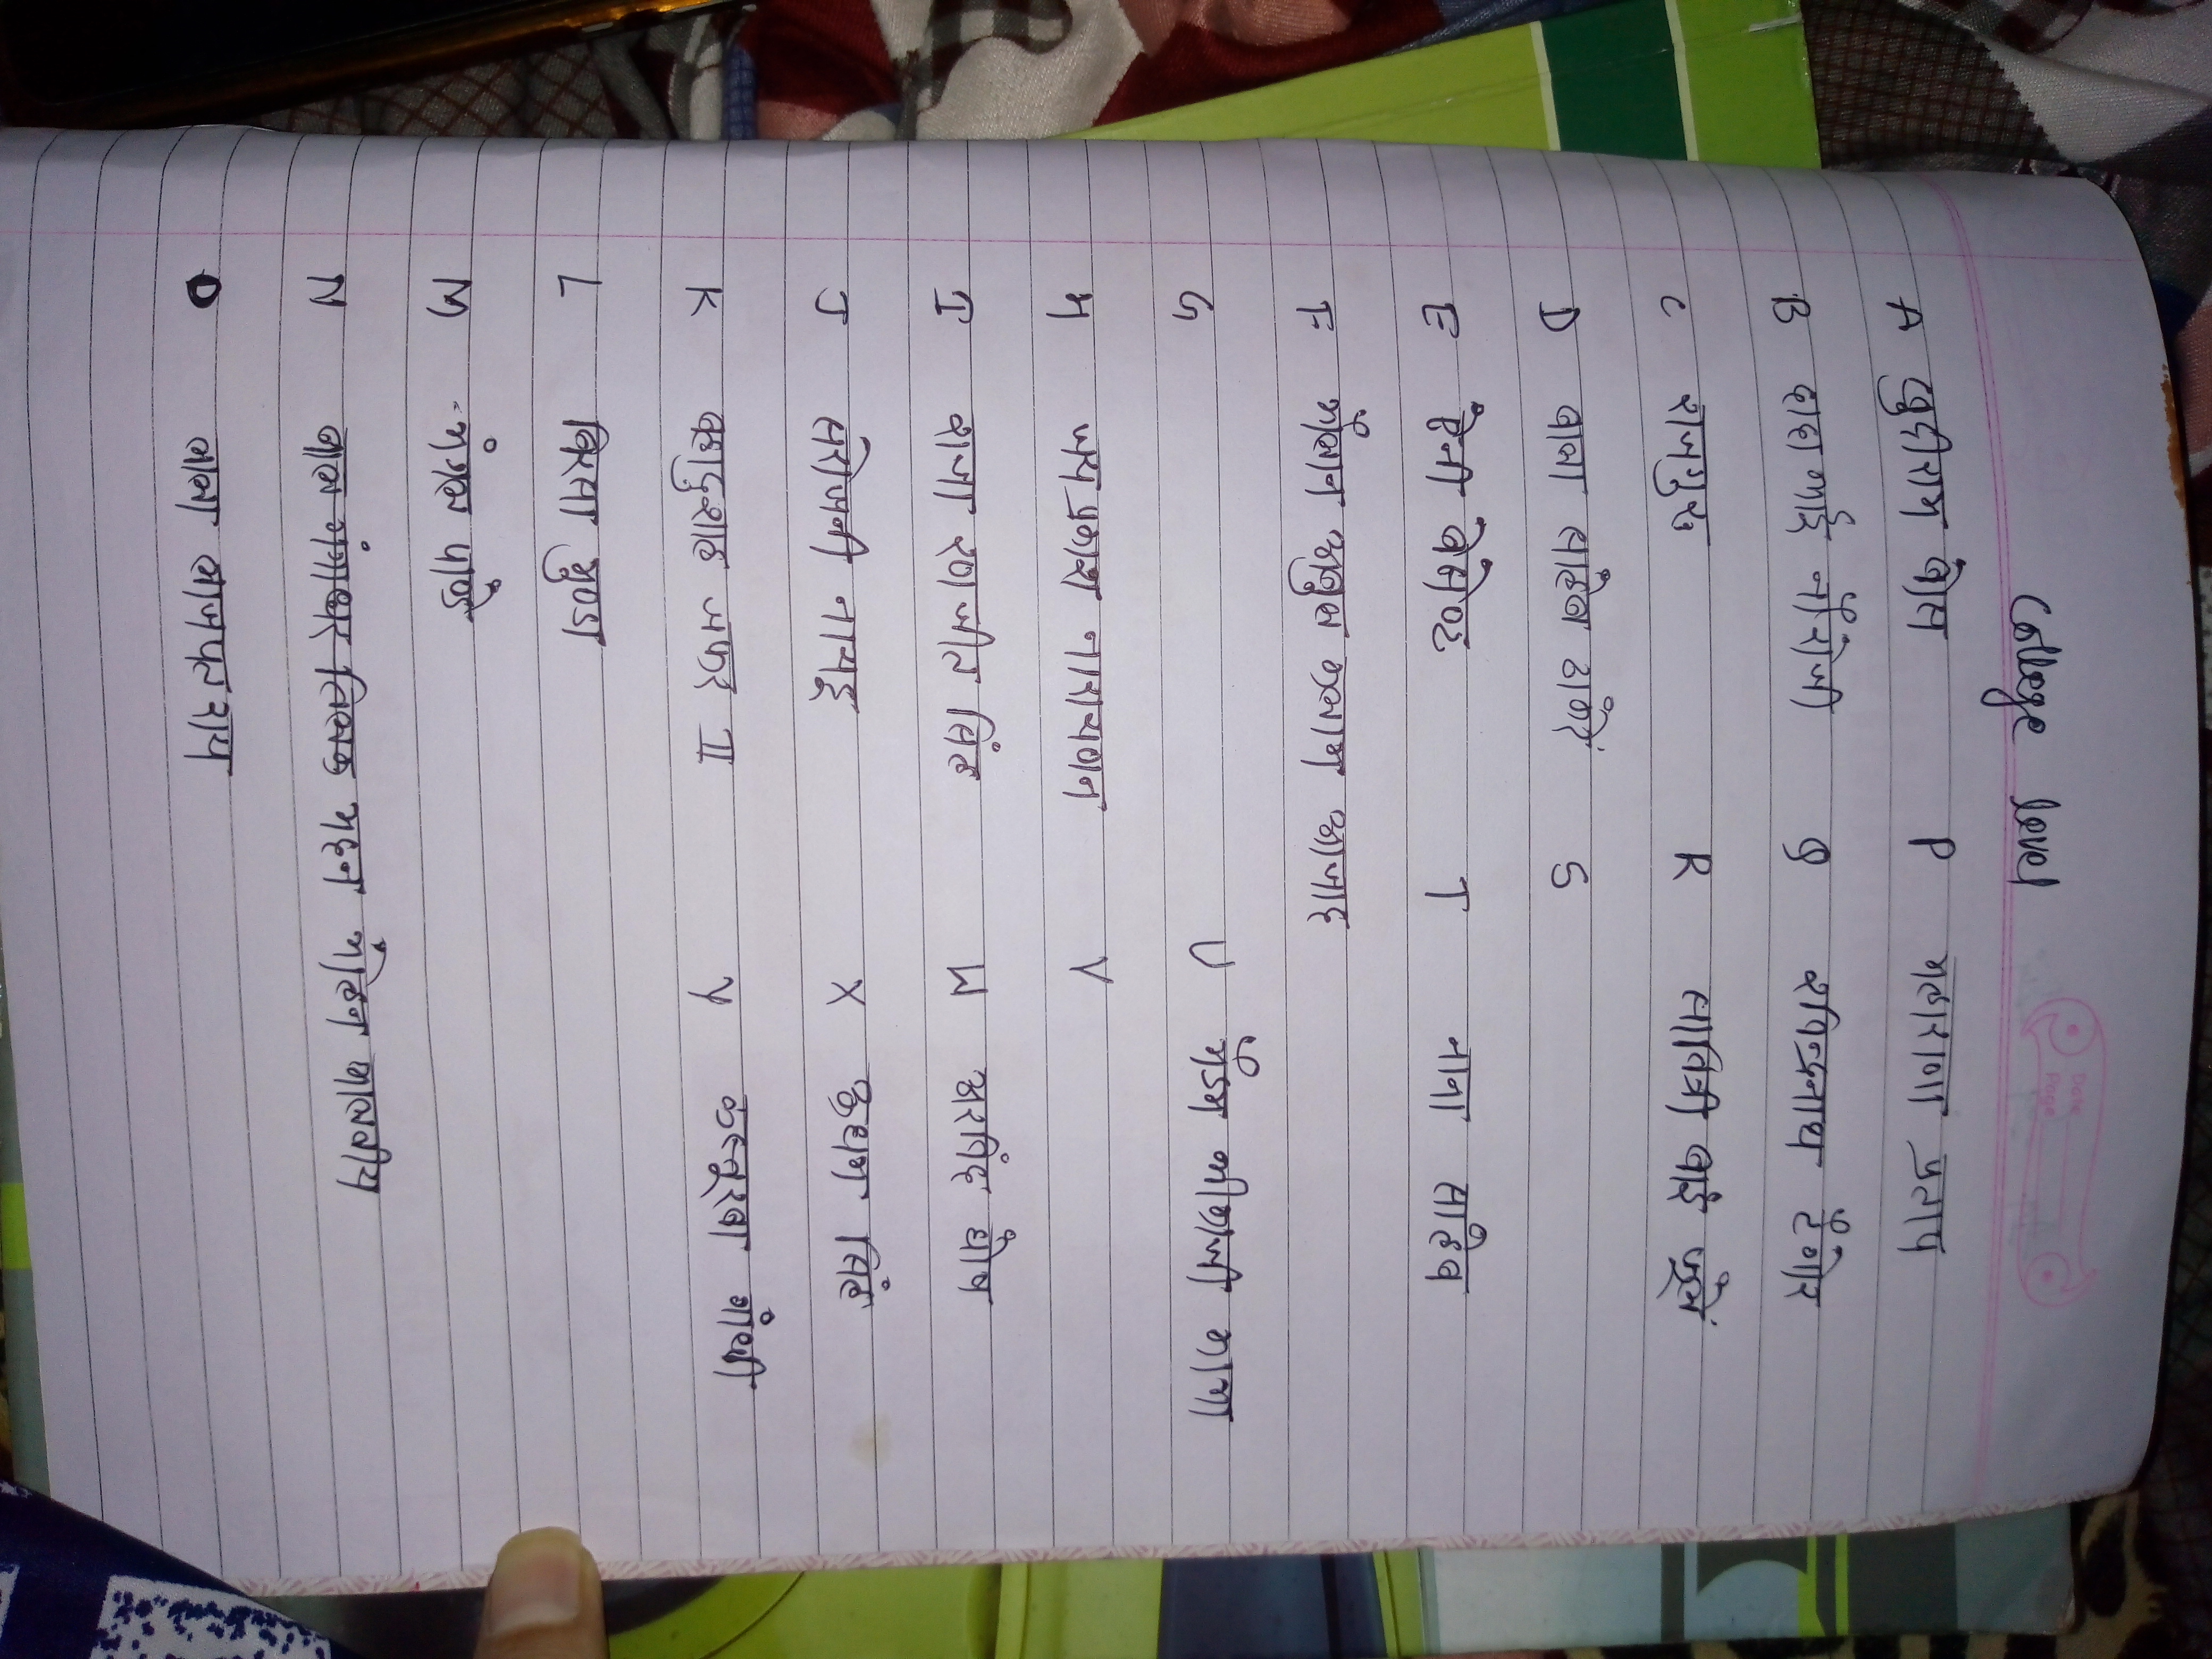 College level
Date
Page
A खुदीराम बोस P महाराणा प्रताप
B दादा भाई नौरोजी Q रविन्द्रनाथ टैगोर
C राजगुरु R सावित्री बाई फूले
D बाबा साहेब S
E ऐनी बेसेण्ट T नाना साहेब
F मौलाना अबुल कलाम आजाद
G U मैडम भीकाजी कामा
H जयप्रकाश नारायणन V
I राजा रणजीत सिंह W अरविंद घोष
J सरोजनी नायडू X ऊधम सिंह
K बहादुरशाह जफर II Y कस्तूरबा गाँधी
L बिरसा मुण्डा
M मंगल पांडे
N बाल गंगाधर तिलक मदन मोहन मालवीय
O लाला लाजपत राय